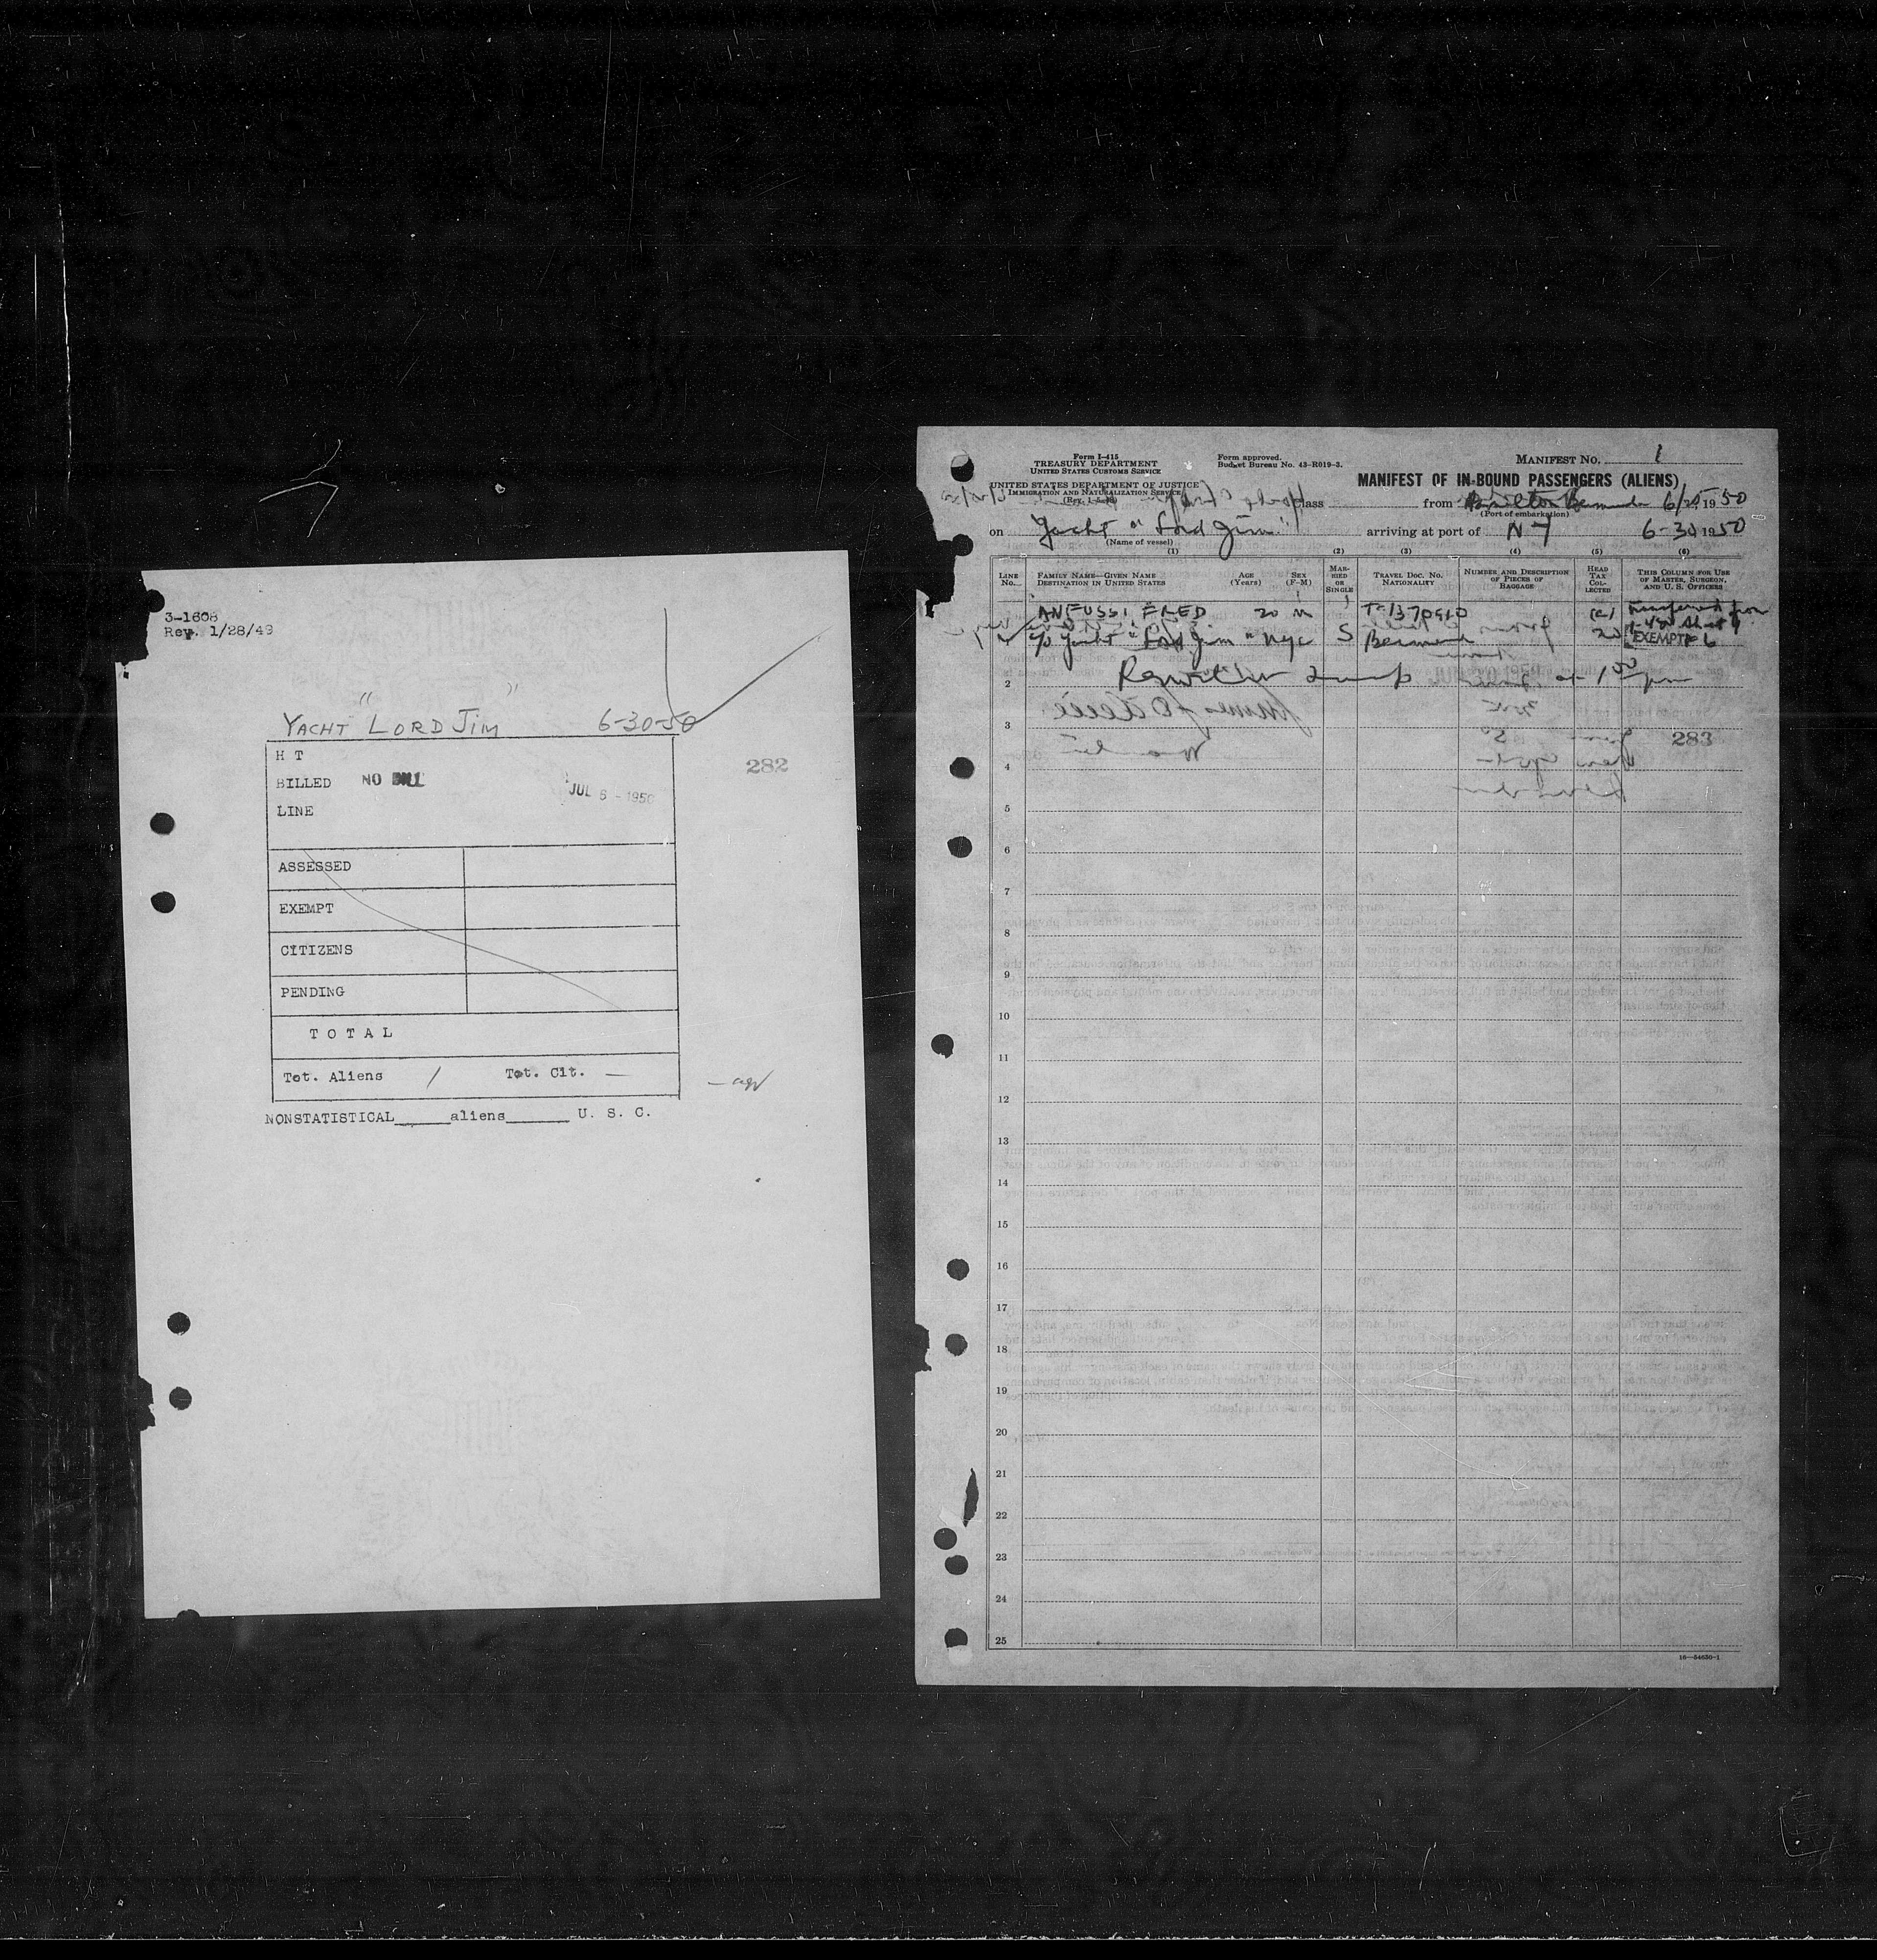 3-1608
Rev. 1/28/49
YACHT "LORD JIM" 6-30-50
H T
BILLED NO BILL JUL 6 - 1950
LINE
282
ASSESSED
EXEMPT
CITIZENS
PENDING
T O T A L
Tot. Aliens / Tot. Cit. —
NONSTATISTICAL_____aliens______ U. S. C.
Form I-415
TREASURY DEPARTMENT
UNITED STATES CUSTOMS SERVICE
UNITED STATES DEPARTMENT OF JUSTICE
IMMIGRATION AND NATURALIZATION SERVICE
Form approved.
Budget Bureau No. 43-R019-3.
MANIFEST NO. 1
MANIFEST OF IN-BOUND PASSENGERS (ALIENS)
Class from Hamilton Bermuda 6/25, 1950
(Port of embarkation)
on Yacht "Lord Jim" arriving at port of N Y 6-30, 1950
(Name of vessel)
(1) (2) (3) (4) (5) (6)
LINE No. FAMILY NAME—GIVEN NAME DESTINATION IN UNITED STATES AGE (Years) SEX (F-M) MARRIED OR SINGLE TRAVEL DOC. NO. NATIONALITY NUMBER AND DESCRIPTION OF PIECES OF BAGGAGE HEAD TAX COLLECTED THIS COLUMN FOR USE OF MASTER, SURGEON, AND U. S. OFFICERS
ANFUSSI FRED 20 M Transferred from
c/o Yacht "Lord Jim" NYC S EXEMPT
2
3
283
4
5
6
7
8
9
10
11
12
13
14
15
16
17
18
19
20
21
22
23
24
25
16—54630-1